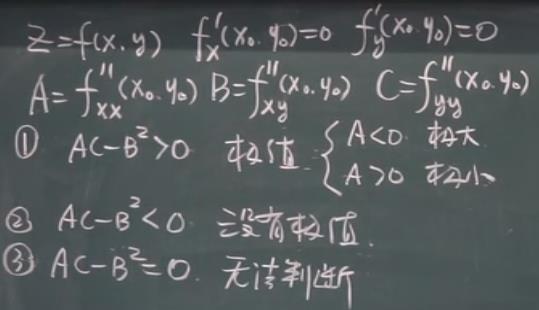 Z=f(x.y) f'x(x₀.y₀)=0 f'y(x₀.y₀)=0
A=f''xx(x₀.y₀) B=f''xy(x₀.y₀) C=f''yy(x₀.y₀)
① AC-B²>0 极值 { A<0 极大
A>0 极小
② AC-B²<0. 没有极值.
③ AC-B²=0. 无法判断